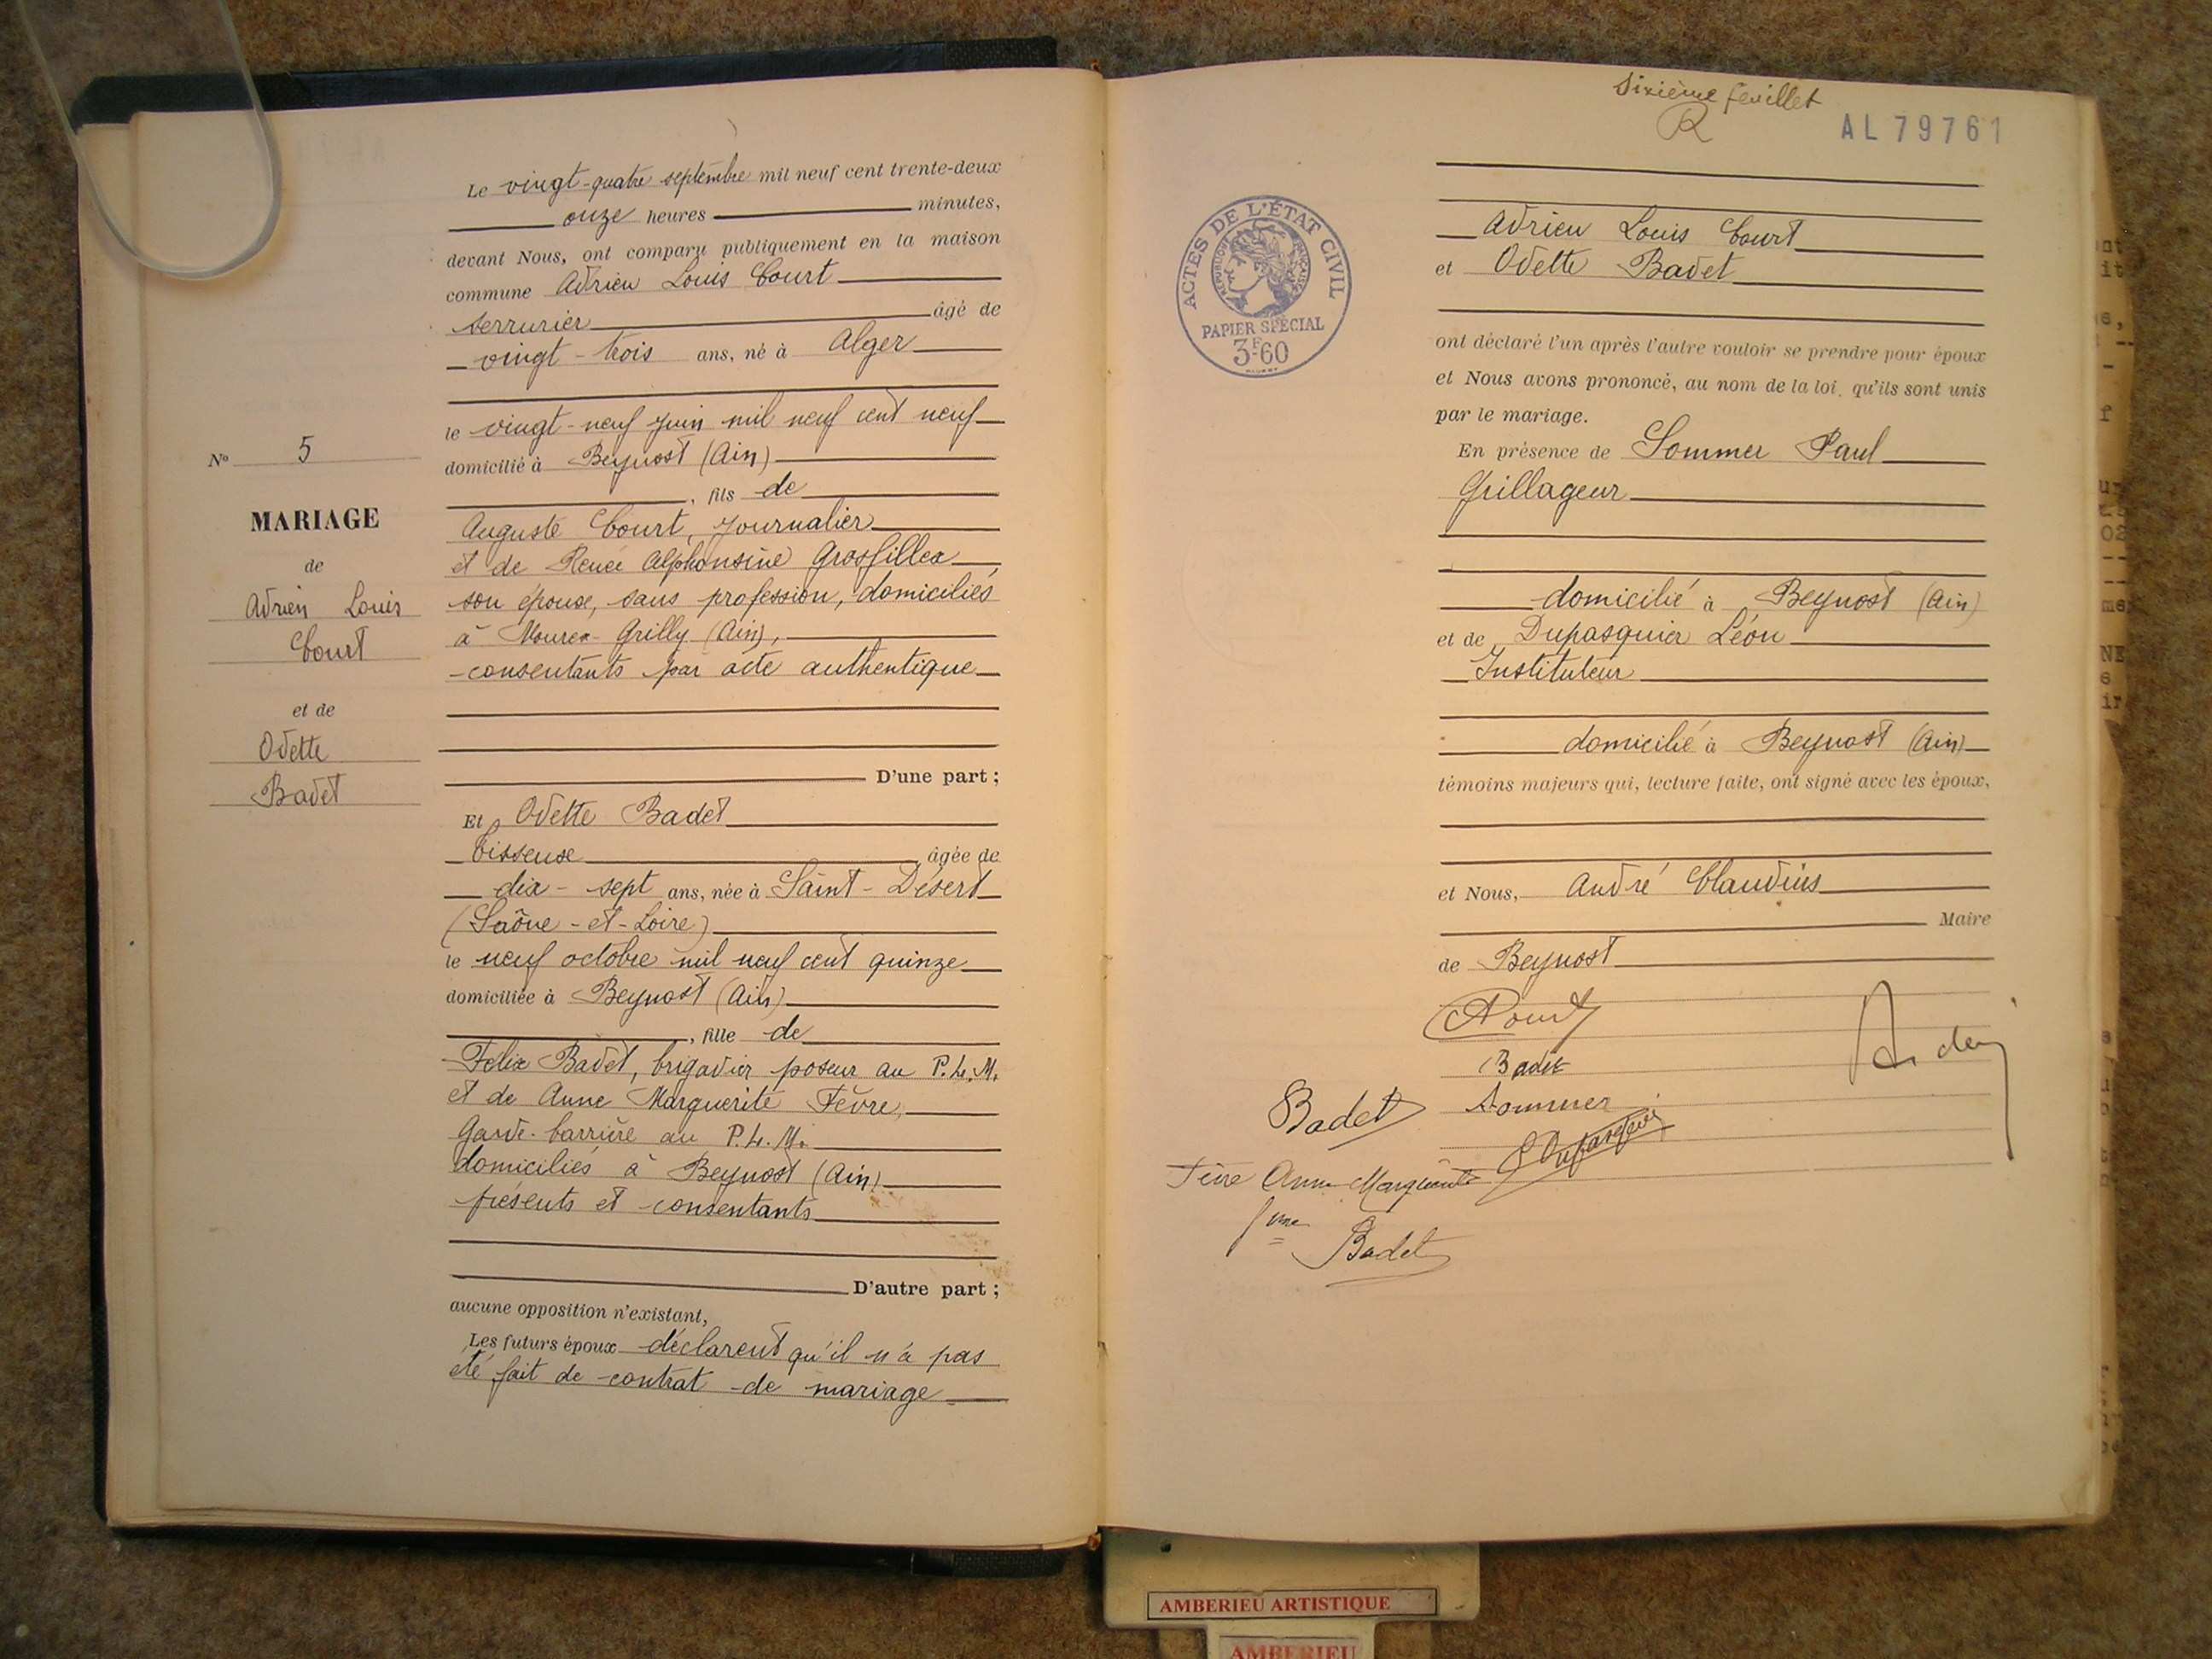 Le vingt-quatre septembre mil neuf cent trente-deux
onze heures minutes,
devant Nous, ont comparu publiquement en la maison
commune Adrien Louis Court
serrurier âgé de
vingt-trois ans, né à Alger
le vingt-neuf juin mil neuf cent neuf
domicilié à Beynost (Ain)
, fils de
Auguste Court, journalier
et de Renée Alphonsine Grosfillex
son épouse, sans profession, domiciliés
à Grilly (Ain),
consentants par acte authentique
D'une part ;
Nº 5
MARIAGE
de
Adrien Louis
Court
et de
Odette
Badet
Et Odette Badet
âgée de
dix-sept ans, née à Saint-Désert
(Saône-et-Loire)
le neuf octobre mil neuf cent quinze
domiciliée à Beynost (Ain)
, fille de
Felix Badet, brigadier poseur au P.L.M.
et de Anne Marguerite Fèvre,
Garde-barrière au P.L.M.
domiciliés à Beynost (Ain)
présents et consentants
D'autre part ;
aucune opposition n'existant,
Les futurs époux déclarent qu'il n'a pas
été fait de contrat de mariage
Sixième feuillet
R
AL 79761
ACTES DE L'ÉTAT CIVIL
RÉPUBLIQUE FRANÇAISE
PAPIER SPÉCIAL
3F60
Adrien Louis Court
et Odette Badet
ont déclaré l'un après l'autre vouloir se prendre pour époux
et Nous avons prononcé, au nom de la loi, qu'ils sont unis
par le mariage.
En présence de Sommer Paul
Grillageur
domicilié à Beynost (Ain)
et de Dupasquier Léon
Instituteur
domicilié à Beynost (Ain)
témoins majeurs qui, lecture faite, ont signé avec les époux,
et Nous, André Claudius
Maire
de Beynost
Badet
Badet
Sommer
Fèvre Anne Marguerite
fme
Badet
AMBERIEU ARTISTIQUE
AMBERIEU